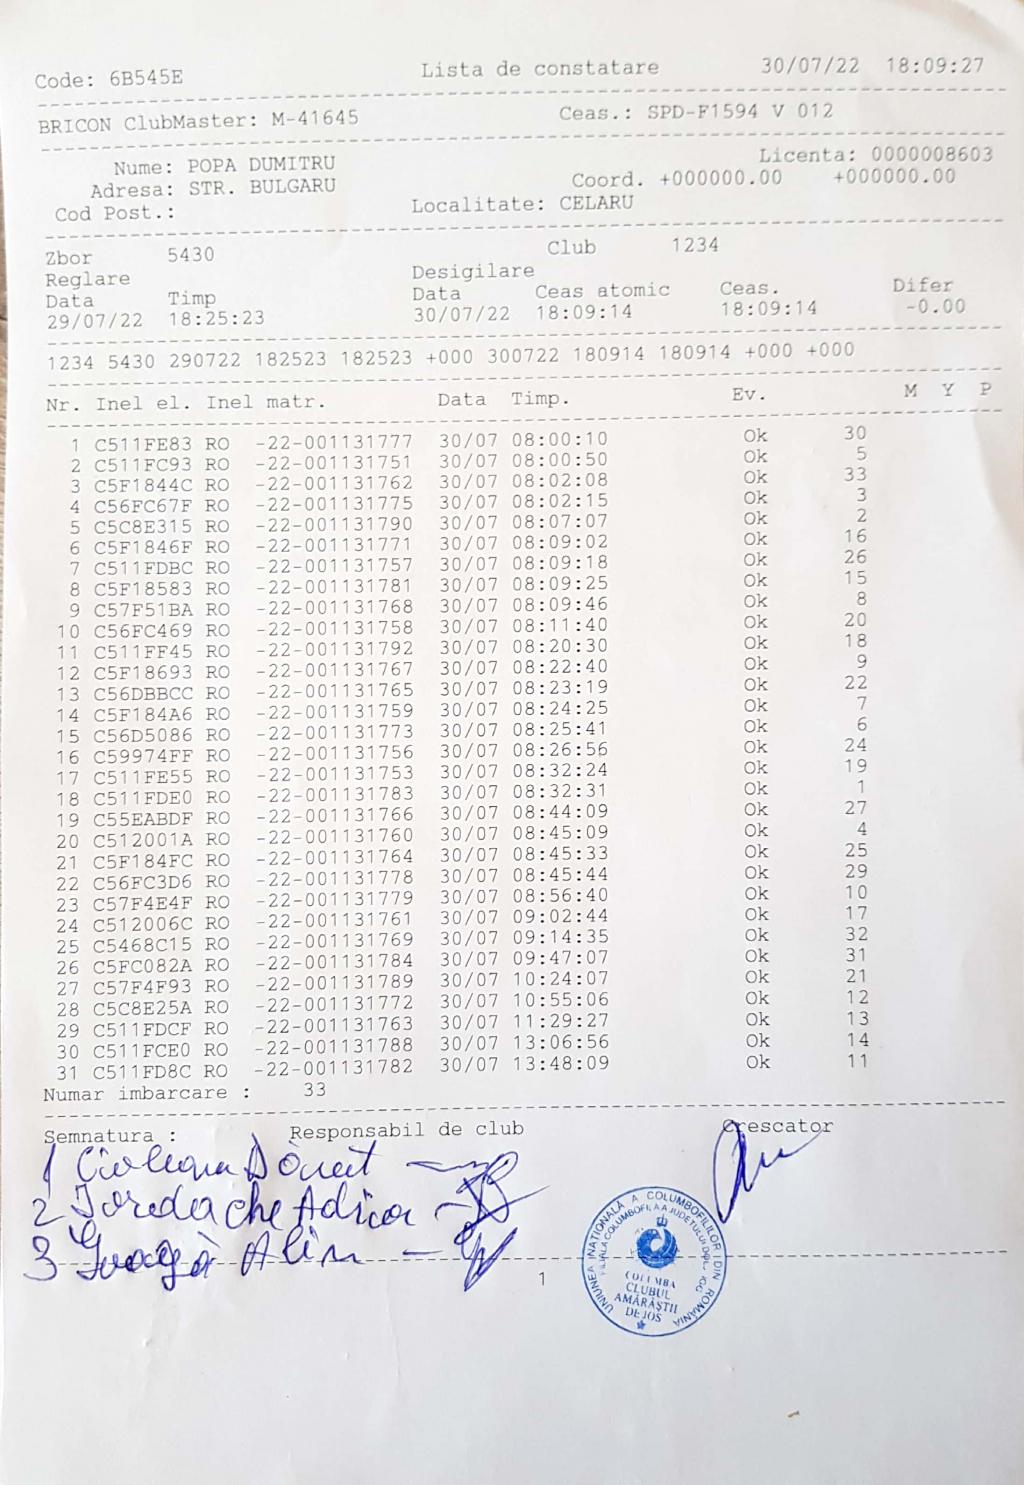 Code: 6B545E Lista de constatare 30/07/22 18:09:27
BRICON ClubMaster: M-41645 Ceas.: SPD-F1594 V 012
Nume: POPA DUMITRU Licenta: 0000008603
Adresa: STR. BULGARU Coord. +000000.00 +000000.00
Cod Post.: Localitate: CELARU
Zbor 5430 Club 1234
Reglare Desigilare
Data Timp Data Ceas atomic Ceas. Difer
29/07/22 18:25:23 30/07/22 18:09:14 18:09:14 -0.00
1234 5430 290722 182523 182523 +000 300722 180914 180914 +000 +000
Nr. Inel el. Inel matr. Data Timp. Ev. M Y P
1 C511FE83 RO -22-001131777 30/07 08:00:10 Ok 30
2 C511FC93 RO -22-001131751 30/07 08:00:50 Ok 5
3 C5F1844C RO -22-001131762 30/07 08:02:08 Ok 33
4 C56FC67F RO -22-001131775 30/07 08:02:15 Ok 3
5 C5C8E315 RO -22-001131790 30/07 08:07:07 Ok 2
6 C5F1846F RO -22-001131771 30/07 08:09:02 Ok 16
7 C511FDBC RO -22-001131757 30/07 08:09:18 Ok 26
8 C5F18583 RO -22-001131781 30/07 08:09:25 Ok 15
9 C57F51BA RO -22-001131768 30/07 08:09:46 Ok 8
10 C56FC469 RO -22-001131758 30/07 08:11:40 Ok 20
11 C511FF45 RO -22-001131792 30/07 08:20:30 Ok 18
12 C5F18693 RO -22-001131767 30/07 08:22:40 Ok 9
13 C56DBBCC RO -22-001131765 30/07 08:23:19 Ok 22
14 C5F184A6 RO -22-001131759 30/07 08:24:25 Ok 7
15 C56D5086 RO -22-001131773 30/07 08:25:41 Ok 6
16 C59974FF RO -22-001131756 30/07 08:26:56 Ok 24
17 C511FE55 RO -22-001131753 30/07 08:32:24 Ok 19
18 C511FDE0 RO -22-001131783 30/07 08:32:31 Ok 1
19 C55EABDF RO -22-001131766 30/07 08:44:09 Ok 27
20 C512001A RO -22-001131760 30/07 08:45:09 Ok 4
21 C5F184FC RO -22-001131764 30/07 08:45:33 Ok 25
22 C56FC3D6 RO -22-001131778 30/07 08:45:44 Ok 29
23 C57F4E4F RO -22-001131779 30/07 08:56:40 Ok 10
24 C512006C RO -22-001131761 30/07 09:02:44 Ok 17
25 C5468C15 RO -22-001131769 30/07 09:14:35 Ok 32
26 C5FC082A RO -22-001131784 30/07 09:47:07 Ok 31
27 C57F4F93 RO -22-001131789 30/07 10:24:07 Ok 21
28 C5C8E25A RO -22-001131772 30/07 10:55:06 Ok 12
29 C511FDCF RO -22-001131763 30/07 11:29:27 Ok 13
30 C511FCE0 RO -22-001131788 30/07 13:06:56 Ok 14
31 C511FD8C RO -22-001131782 30/07 13:48:09 Ok 11
Numar imbarcare : 33
Semnatura : Responsabil de club Crescator
1
2 Iordache
3 Alin
1
UNIUNEA NAȚIONALĂ A COLUMBOFILILOR DIN ROMÂNIA
FILIALA COLUMBOFILĂ A JUDEȚULUI DOLJ
COLUMBA
CLUBUL
AMĂRĂȘTII
DE JOS